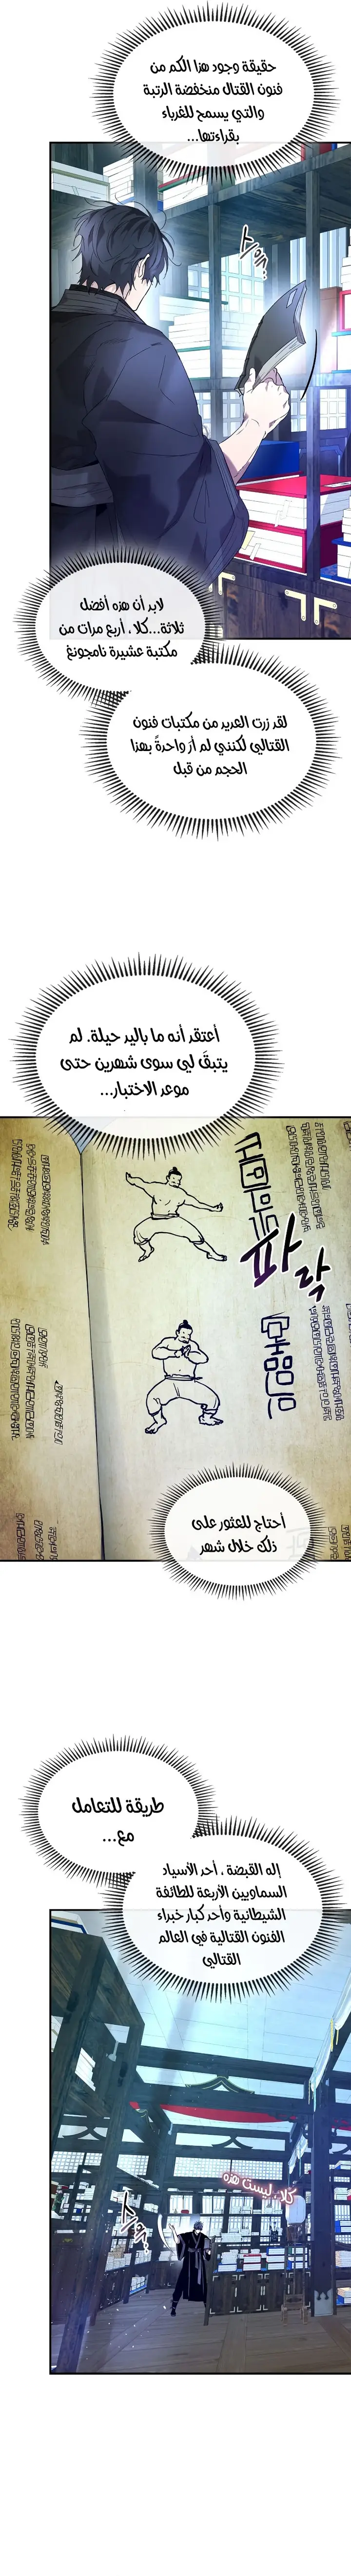 حقيقة وجود هذا الكم من
فنون القتال منخفضة الرتبة
والتي يسمح للغرباء
بقراءتها...
لابد أن هذه أفضل
ثلاثة...كلا ، أربع مرات من
مكتبة عشيرة نامجونغ
لقد زرت العديد من مكتبات فنون
القتالي لكنني لم أرَ واحدةً بهذا
الحجم من قبل
أعتقد أنه ما باليد حيلة. لم
يتبقَ لي سوى شهرين حتى
موعد الاختبار...
파락
أحتاج للعثور على
ذلك خلال شهر
طريقة للتعامل
مع...
إله القبضة ، أحد الأسياد
السماويين الأربعة للطائفة
الشيطانية وأحد كبار خبراء
الفنون القتالية في العالم
القتالي
كلا، ليست هذه